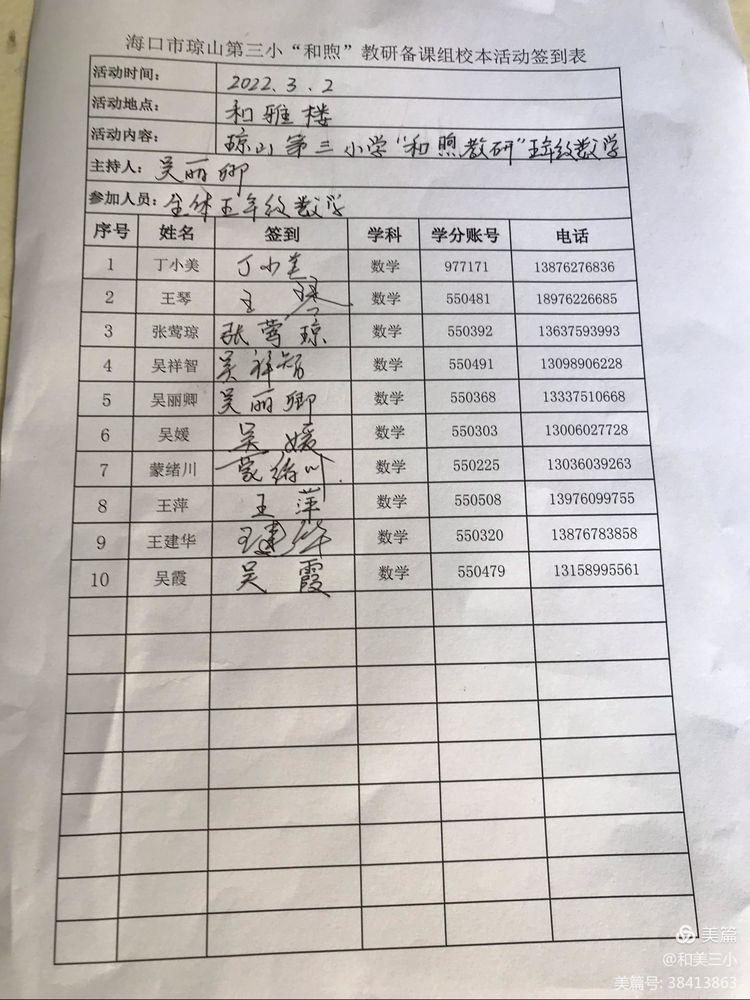 海口市琼山第三小“和煦”教研备课组校本活动签到表
活动时间： 2022.3.2
活动地点： 和雅楼
活动内容： 琼山第三小学“和煦教研”五年级数学
主持人：吴丽卿
参加人员：全体五年级数学
序号 姓名 签到 学科 学分账号 电话
1 丁小美 丁小美 数学 977171 13876276836
2 王琴 王琴 数学 550481 18976226685
3 张莺琼 张莺琼 数学 550392 13637593993
4 吴祥智 吴祥智 数学 550491 13098906228
5 吴丽卿 吴丽卿 数学 550368 13337510668
6 吴媛 吴媛 数学 550303 13006027728
7 蒙绪川 蒙绪川 数学 550225 13036039263
8 王萍 王萍 数学 550508 13976099755
9 王建华 王建华 数学 550320 13876783858
10 吴霞 吴霞 数学 550479 13158995561
美篇
@和美三小
美篇号: 38413863